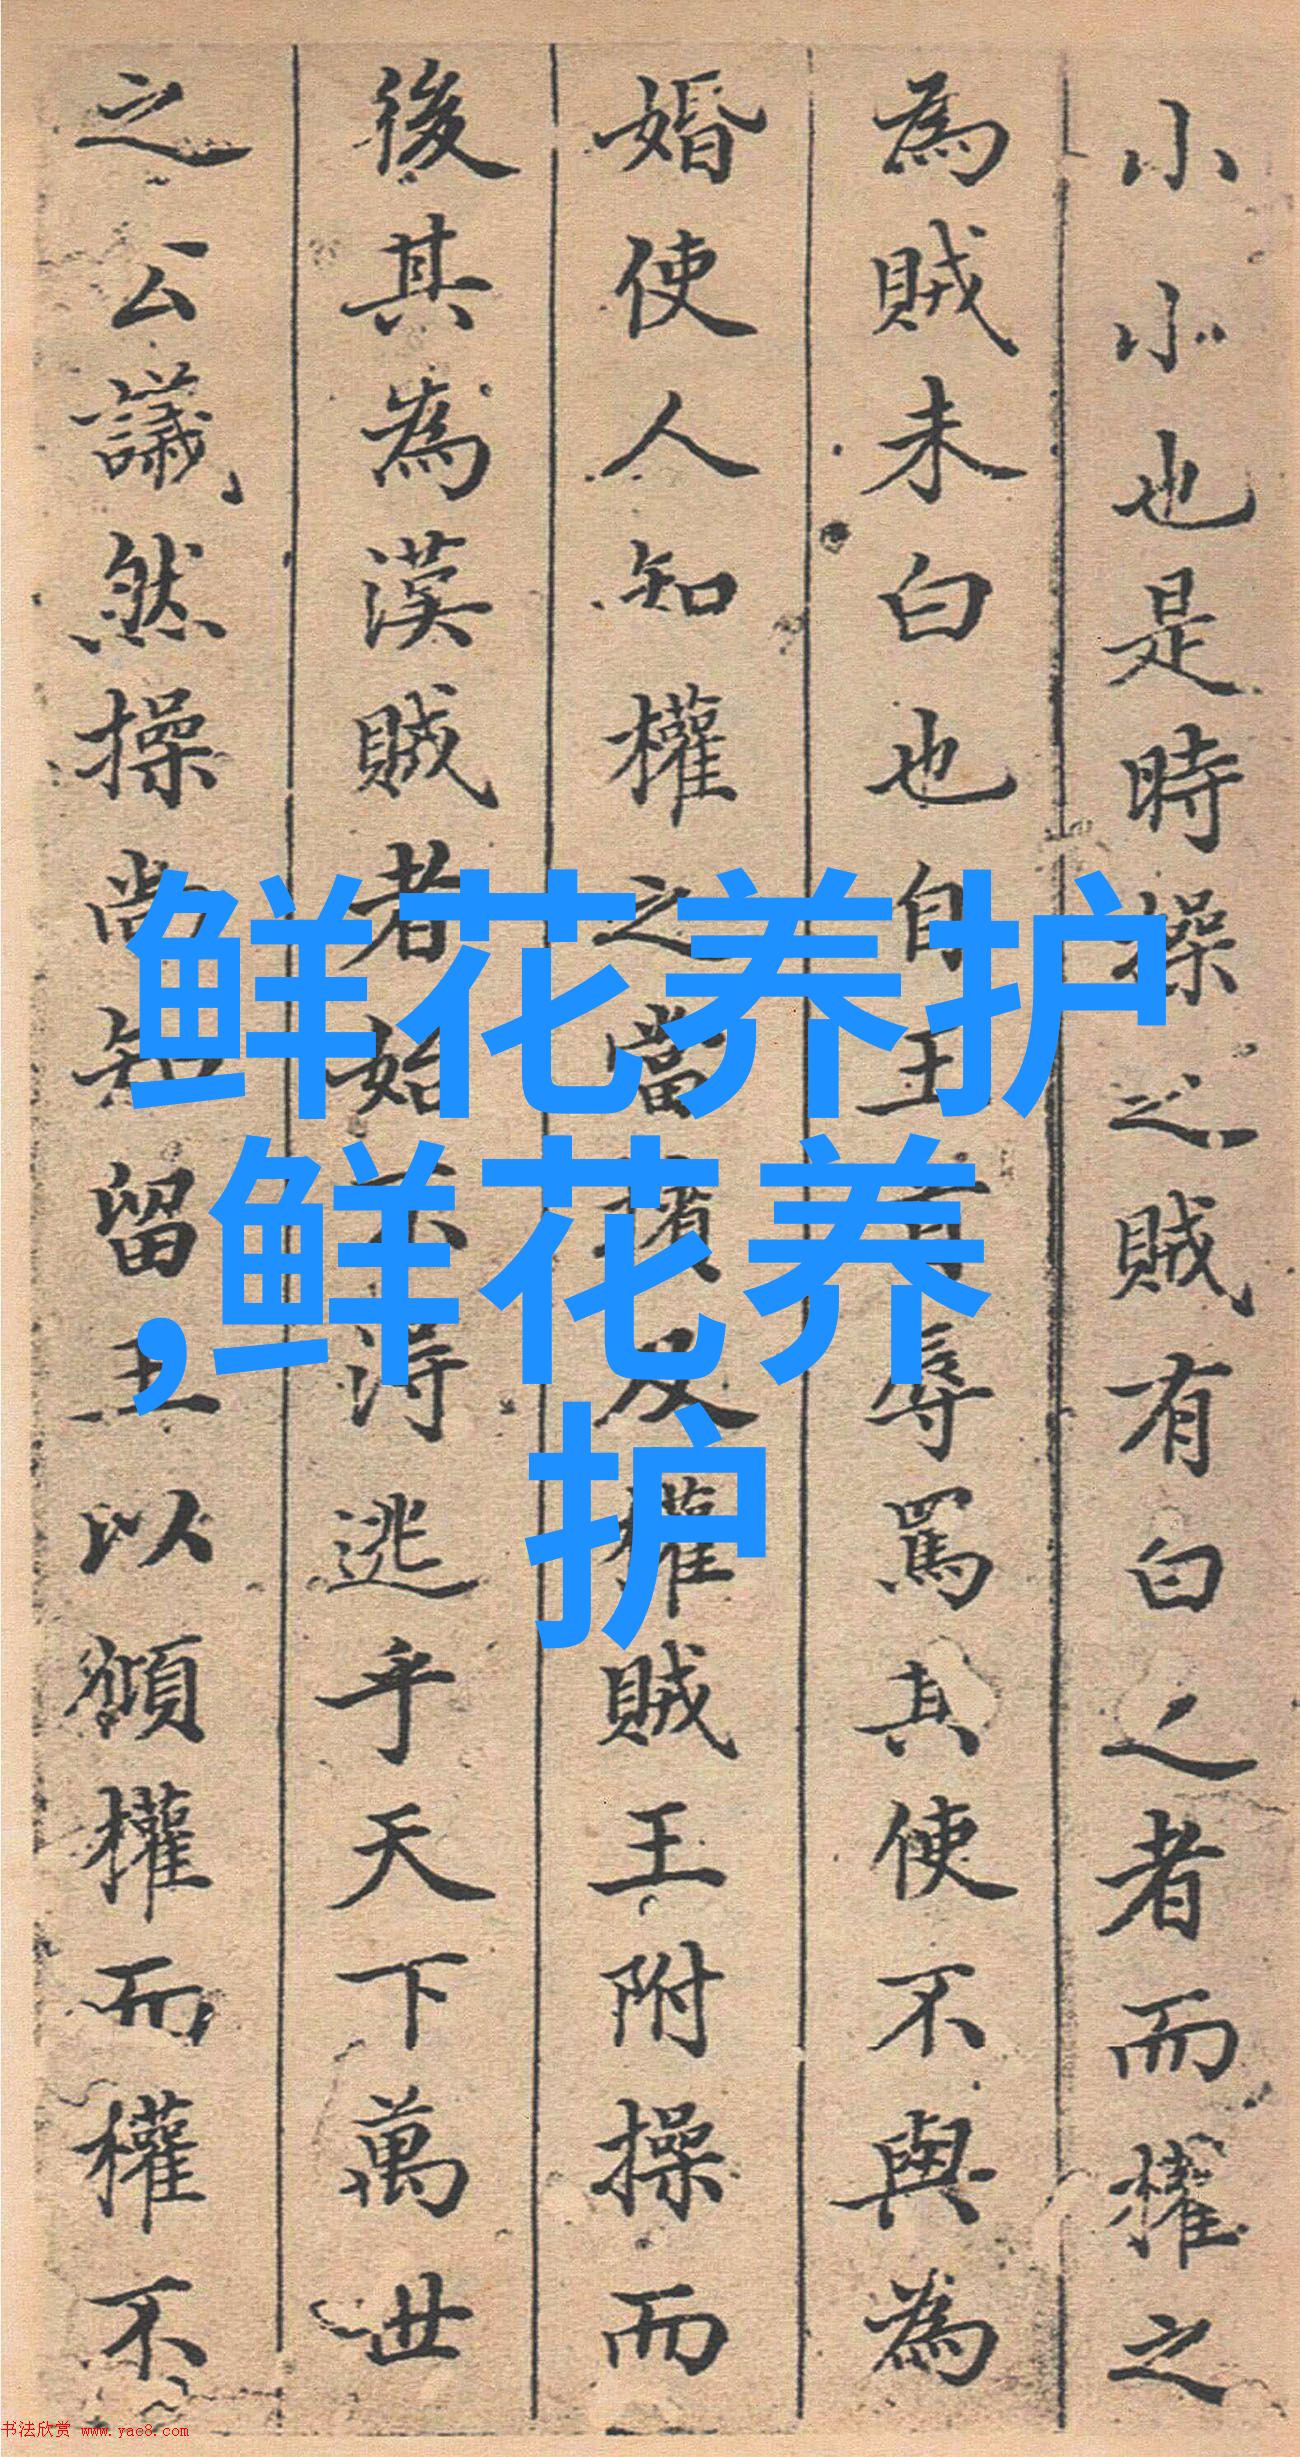 小小也是時操之賊有白之者而權之
為賊未白也自王有辱罵其使不與為
婚使人知權之當擯及權賊王附操而
後其為漢賊者始不得逃乎天下萬世
之公議然操尚知留王以傾權而權不
鲜花养护
,鲜花养
护
书法欣赏 www.yac8.com